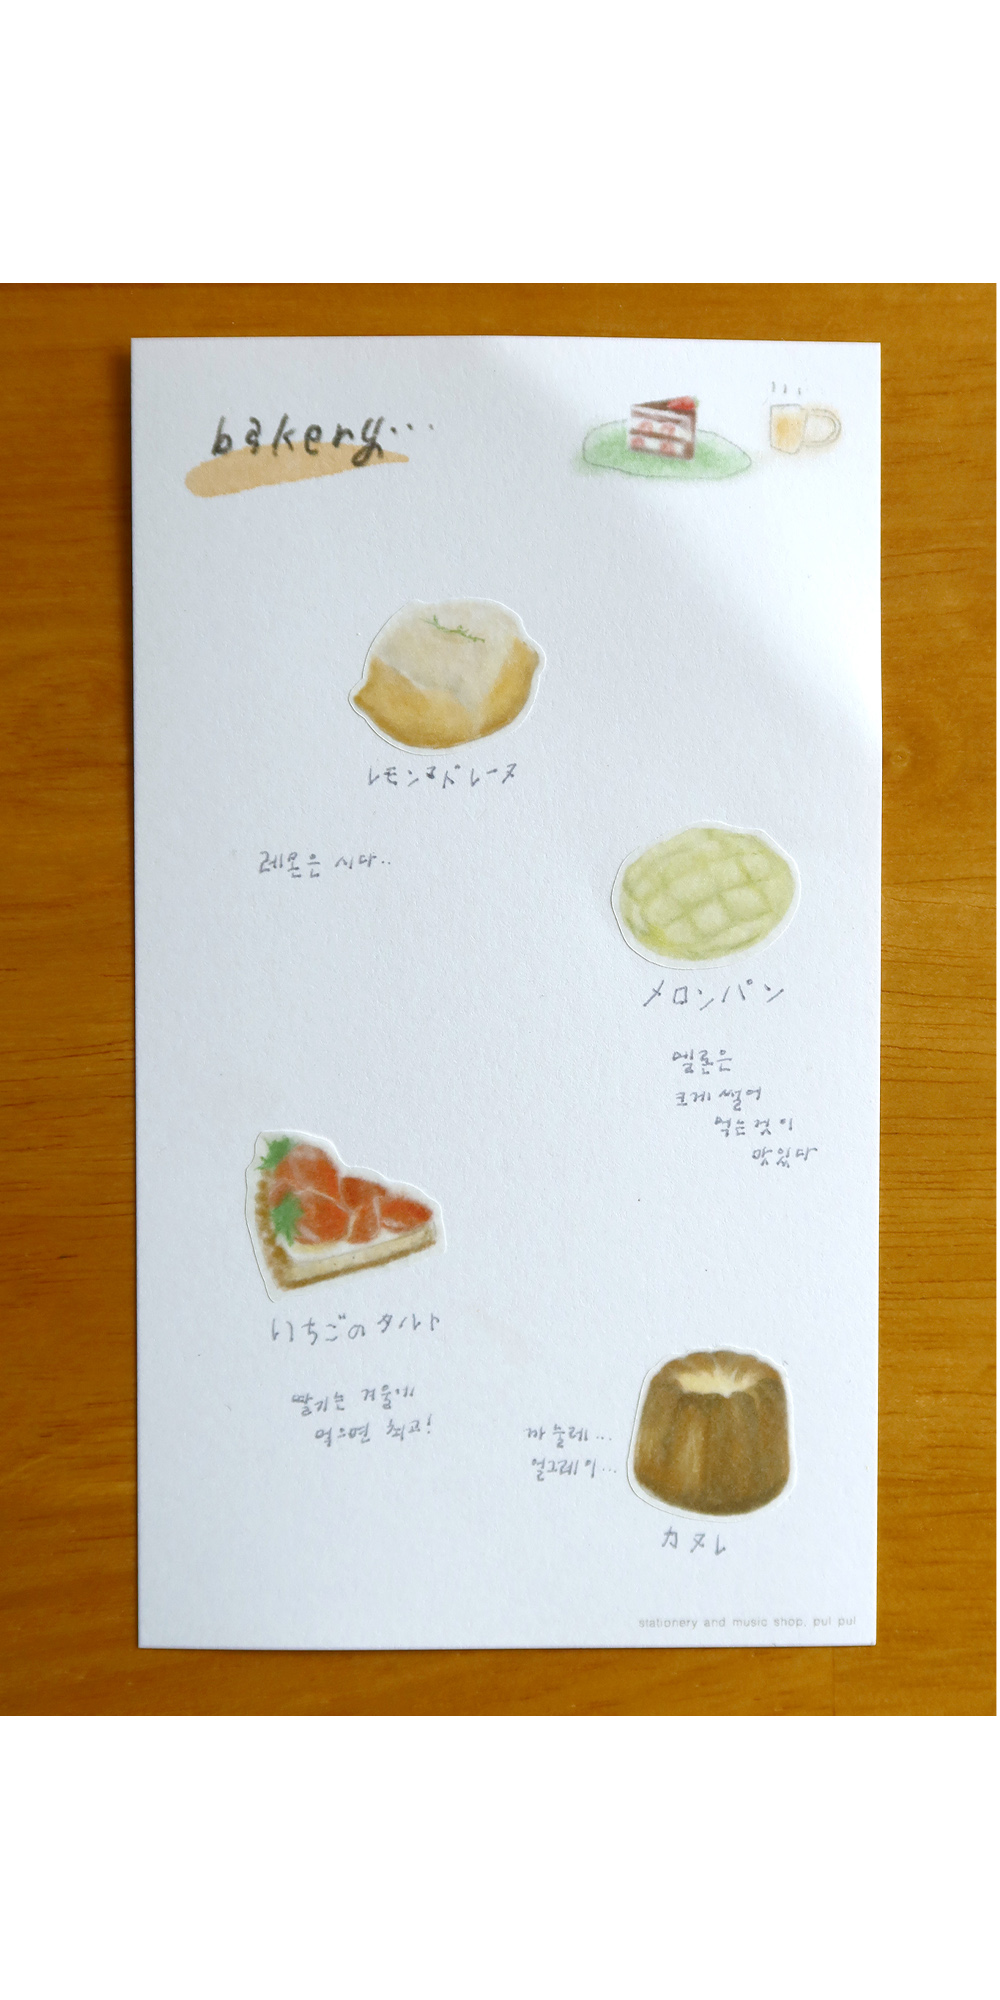 bakery...
レモンマドレーヌ
레몬은 시다..
メロンパン
멜론은
크게 썰어
먹는 것이
맛있다
いちごのタルト
딸기는 겨울에
먹으면 최고!
까눌레...
얼그레이...
カヌレ
stationery and music shop, pul pul